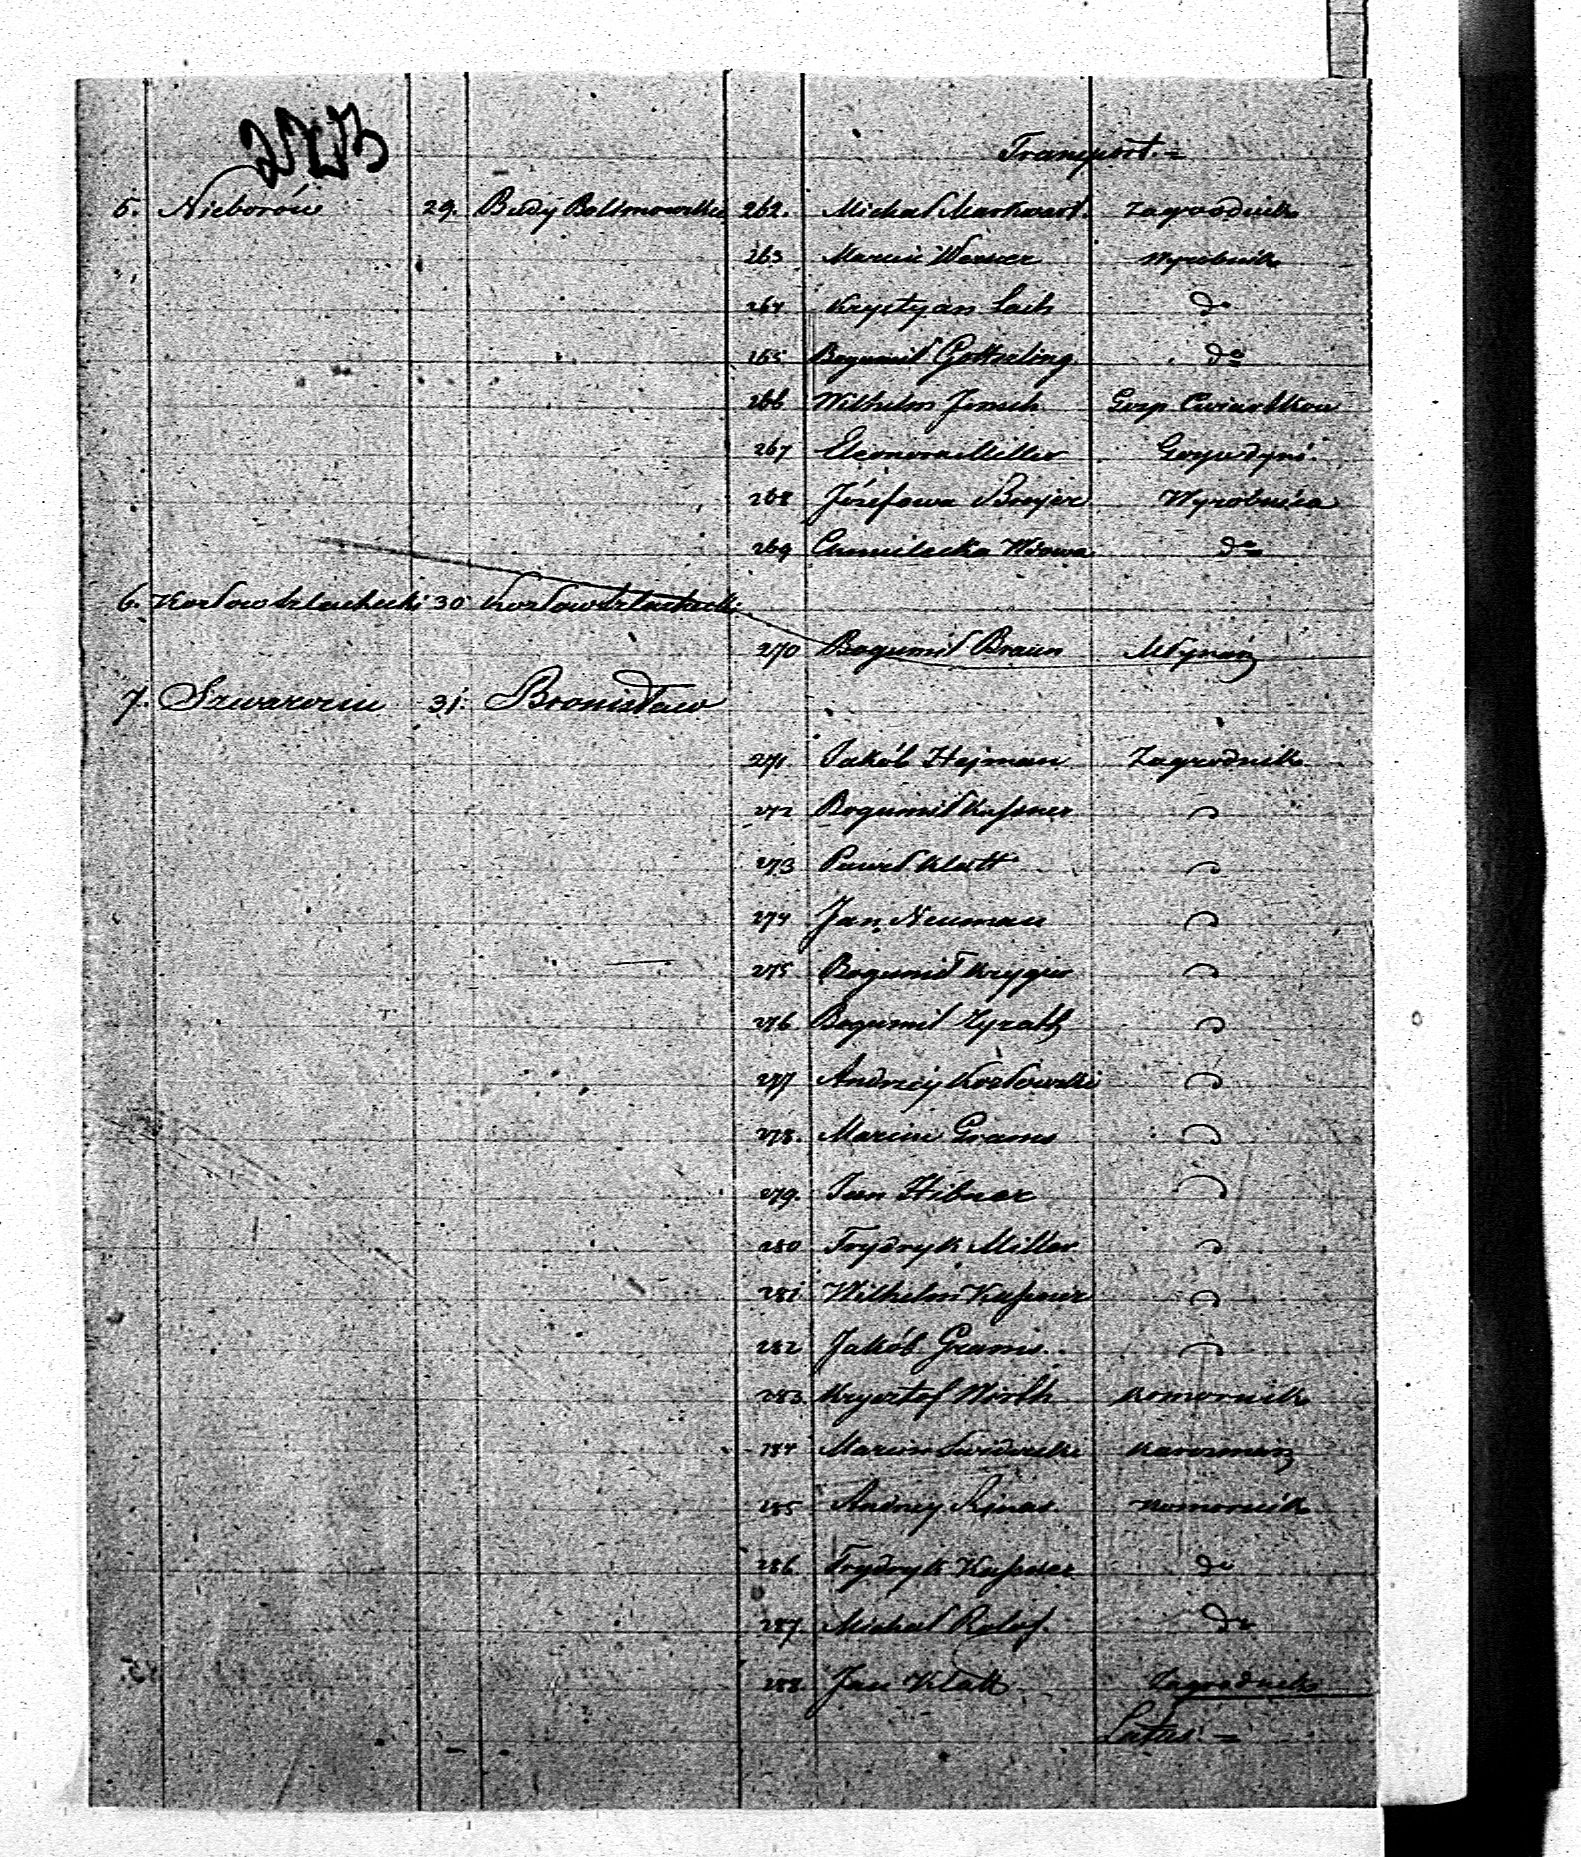 Transport. =
5. Nieborów 29. Budy Bolimowskie 262. Michał Markwart. Zagrodnik
263 Marcin Werner Wyrobnik
264 Krystyan Lach do
265 Bogumił Gottseling do
266 Wilhelm Jensch Gosp Cwiartkow
267 Eleonora Miller Gospodyni.
268 Józefowa Brejer Wyrobnica
269 Wdowa do
6. Kozłow Szlachecki 30 Kozłow Szlachecki
270 Bogumił Braun Młynarz
7. Szwarocin 31. Bronisław
271 Jakób Hejman Zagrodnik
272 Bogumił Kaſsner "
273 Paweł Klatt "
274 Jan Neuman "
275 Bogumił Krygier "
276 Bogumił "
277 Andrzéy Kozłowski "
278. Marcin Grams "
279. Jan Hibner "
280 Frydryk Miller "
281 Wilhelm Kaſsner "
282 Jakób Grams. "
283. Krysztof Wirth Komornik
284 Marcin Karczmarz
285 Andrzey Rynas. Komornik
286 Frydryk Kaſsner do
287. Michał Rolof. do
288 Jan Klatt Zagrodnik
Latus. =